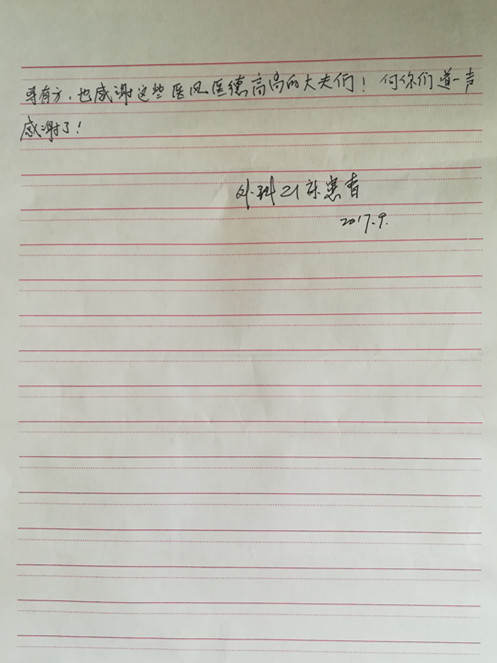 导有方，也感谢这些医风医德高尚的大夫们！向你们道一声
感谢了！
外科21床患者
2017.9.